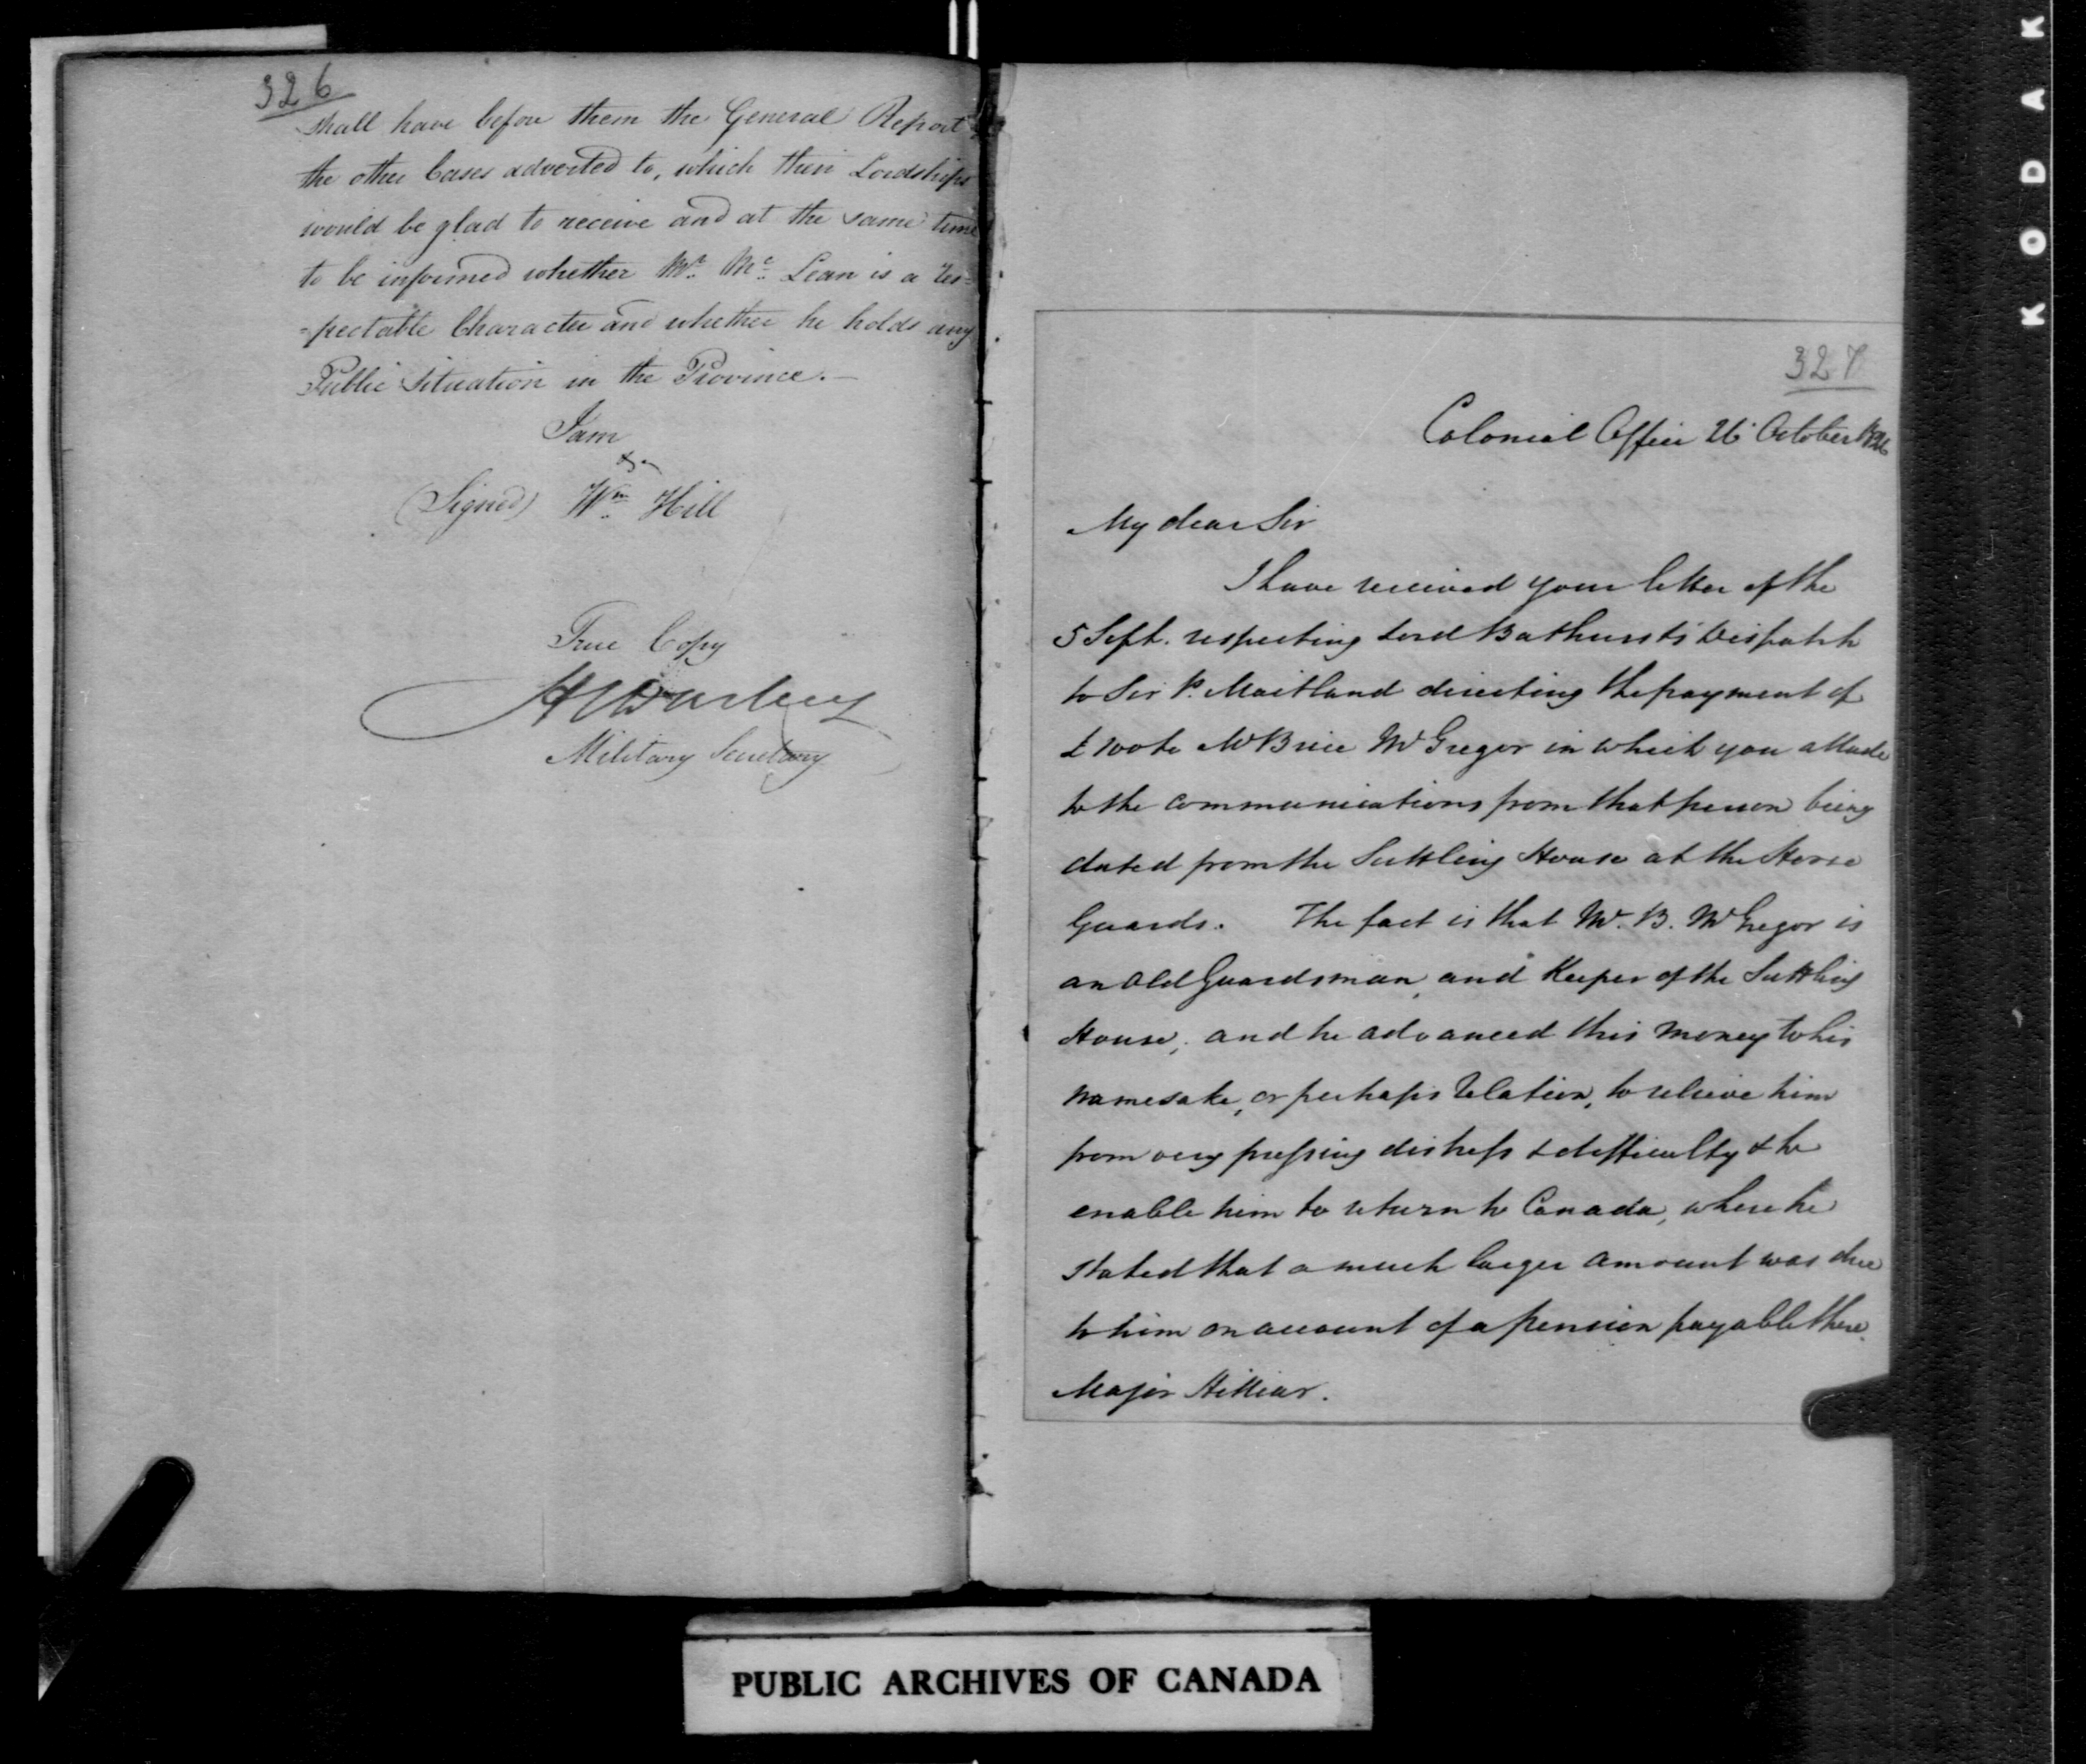 326
shall have before them the General Report
the other Cases adverted to, which their Lordships
would be glad to receive and at the same time
to be informed whether Mr. Mc. Lean is a res=
=pectable Character and whether he holds any
Public Situation in the Province.—
I am
&c
(Signed) Wm. Hill
True Copy
HCDarling
Military Secretary
327
Colonial Office 26 October 1826
My dear Sir
I have received your letter of the
5 Sept. respecting Lord Bathursts' Dispatch
to Sir P. Maitland directing the payment of
£100 to Mr Brice McGregor in which you allude
to the communications from that person being
dated from the Suttling House at the Horse
Guards. The fact is that Mr. B. McGregor is
an old Guardsman, and Keeper of the Suttling
House, and he advanced this money to his
namesake, or perhaps relation, to relieve him
from very pressing distress & difficulty & to
enable him to return to Canada, where he
stated that a much larger amount was due
to him on account of a pension payable there.
Major Hillier.
PUBLIC ARCHIVES OF CANADA
KODAK